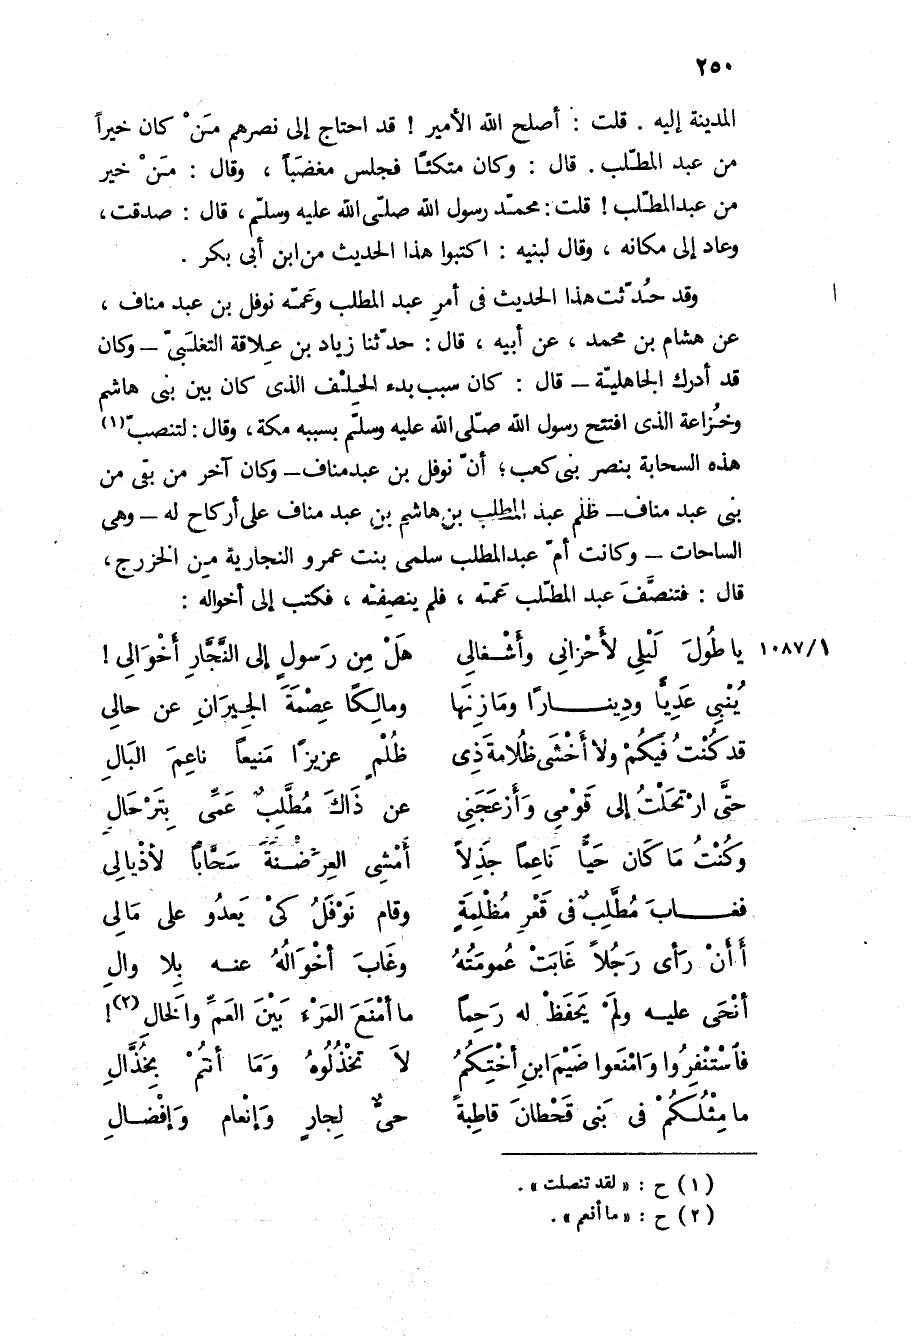 ٢٥٠
المدينة إليه . قلت : أصلح الله الأمير ! قد احتاج إلى نصرهم مَنْ كان خيراً
من عبد المطّلب . قال : وكان متكئاً فجلس مغضَباً ، وقال : مَنْ خير
من عبدالمطّلب ! قلت : محمّد رسول الله صلّى الله عليه وسلّم ، قال : صدقت ،
وعاد إلى مكانه ، وقال لبنيه : اكتبوا هذا الحديث من ابن أبى بكر .
وقد حُدّثت هذا الحديث فى أمرِ عبد المطلب وعَمّه نوفل بن عبد مناف ، ا
عن هشام بن محمد ، عن أبيه ، قال : حدّثنا زياد بن عِلاقة التغلَبىّ – وكان
قد أدرك الجاهليّة – قال : كان سبب بدء الحِلْف الذى كان بين بنى هاشم
وخُزاعة الذى افتتح رسول الله صلّى الله عليه وسلّم بسببه مكة ، وقال : لتنصبّ (١)
هذه السحابة بنصر بنى كعب ؛ أنّ نوفل بن عبدمناف – وكان آخر من بقى من
بنى عبد مناف – ظلم عبد المطلب بن هاشم بن عبد مناف على أركاح له – وهى
الساحات – وكانت أمّ عبدالمطلب سلمى بنت عمرو النجارية مِن الخزرج ،
قال : فتنصَّفَ عبد المطّلب عَمّه ، فلم ينصِفْه ، فكتب إلى أخواله :
١٠٨٧/١ يا طُولَ لَيْلِي لأَحْزانِي وأَشْغالِى هَلْ مِن رَسولٍ إلى النَّجَّارِ أَخْوَالِي !
يُنْبِى عَدِيًّا ودِينارًا ومَازِنَها ومالِكًا عِصْمَةَ الجِيرَانِ عن حالِى
قد كُنْتُ فيَكُمْ ولا أَخْشَى ظُلامةَ ذِى ظُلْمٍ عزيزًا مَنيعاً ناعِمَ البَالِ
حتَّى ارْتَحَلْتُ إلى قَوْمِى وَأَزعَجَنِى عن ذَاكَ مُطَّلِبٌ عَمِّى بِتَرْحَالِ
وكُنْتُ مَا كَان حَيًّا نَاعِماً جَذِلاً أَمْشِى العِرَضْنَةَ سَحَّاباً لأذْيالِى
فغابَ مُطَّلِبٌ فى قَعْرِ مُظْلِمَةٍ وقام نَوْفَلُ كىْ يَعدُو على مَالِى
أَأنْ رَأى رَجُلاً غابَتْ عُمومَتُهُ وغَابَ أخْوَالُهُ عنه بِلا والِ
أنْحَى عليه ولَمْ يَحفَظْ له رَحِماً ما أمْنَعَ المَرْءَ بَيْنَ العَمِّ والخالِ (٢) !
فاسْتَنْفِرُوا وَامْنَعوا ضَيْمَ ابنِ أخْتِكُمُ لاَ تَخْذُلُوهُ وَمَا أنتُمْ بِخُذَّالِ
ما مِثْلُكُمْ فى بَنى قَحْطانَ قاطِبةً حىٌّ لِجارٍ وَإنْعام وَإفْضالِ
(١) ح : « لقد تنصلت » .
(٢) ح : « ما أنعم » .